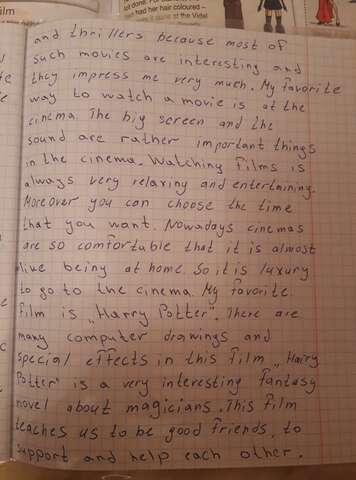 film
lot done.
had her hair coloured –
and thrillers because most of
such movies are interesting and
they impress me very much. My favorite
way to watch a movie is at the
cinema. The big screen and the
sound are rather important things
in the cinema. Watching films is
always very relaxing and entertining.
Moreover you can choose the time
that you want. Nowadays cinemas
are so comfortable that it is almost
like being at home. So it is luxury
to go to the cinema. My favorite
film is „Harry Potter". There are
many computer drawings and
special effects in this film „Harry
Potter" is a very interesting fantasy
novel about magicians. This film
teaches us to be good friends, to
support and help each other.